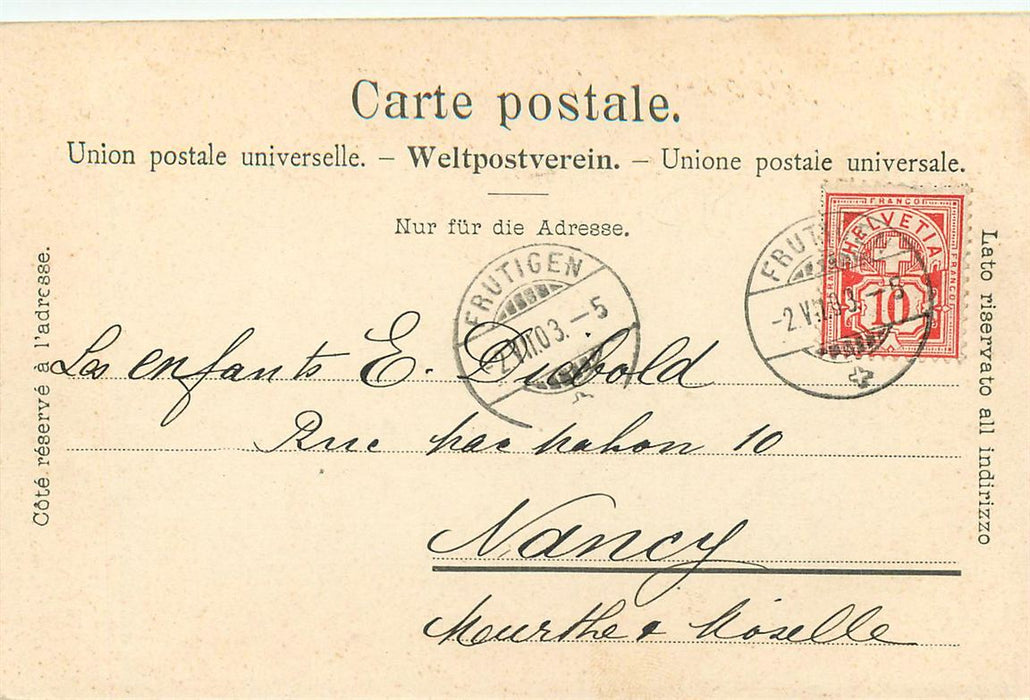 Carte postale.
Union postale universelle. – Weltpostverein. – Unione postale universale.
Nur für die Adresse.
Côté réservé à l'adresse.
Lato riservato all indirizzo
FRANCO
FRANCO
FRANCO
HELVETIA
10
FRUTIGEN
03.–5
FRUTI
-2.V 03.–5
Les enfants E. Diebold
Rue Mac Mahon 10
Nancy
Meurthe & Moselle